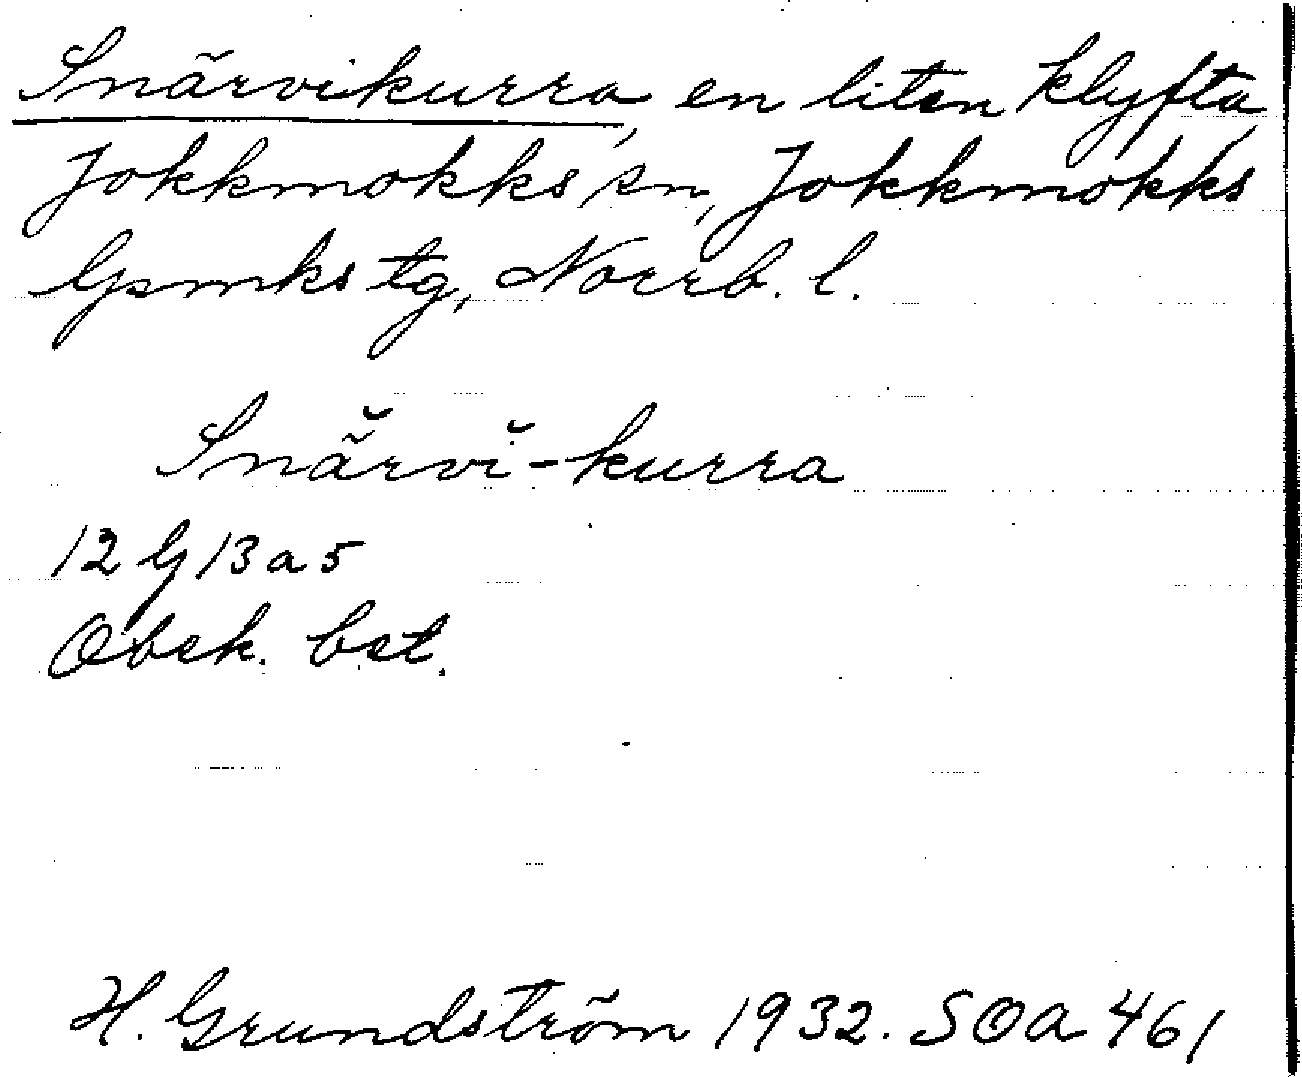 Snärvikurra, en liten klyfta,
Jokkmokks sn, Jokkmokks
lpmks tg, Norrb. l.
Snä̆rvĭ-kurra
12 G 13 a 5
Obek. bet.
H. Grundström 1932. SOA 461